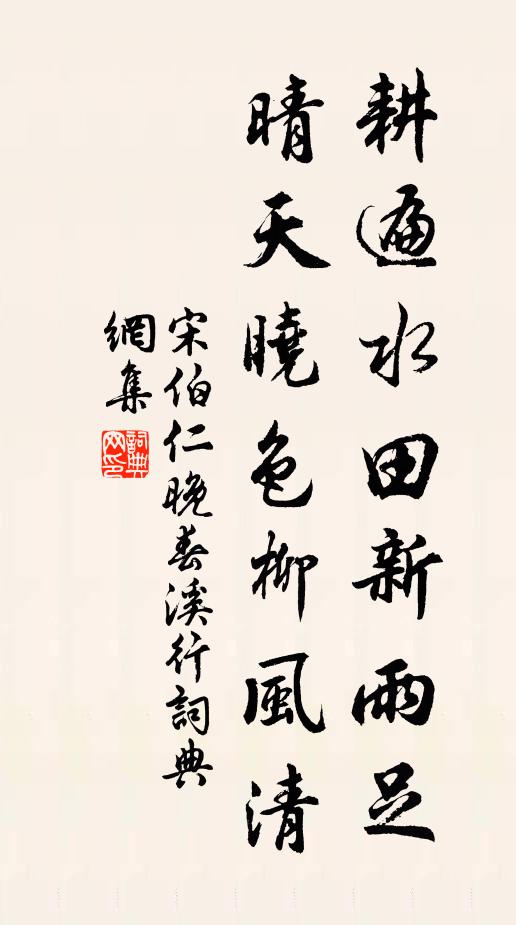 耕遍水田新雨足
晴天曉色柳風清
宋伯仁晚春溪行詞典
網集
詞典
网印